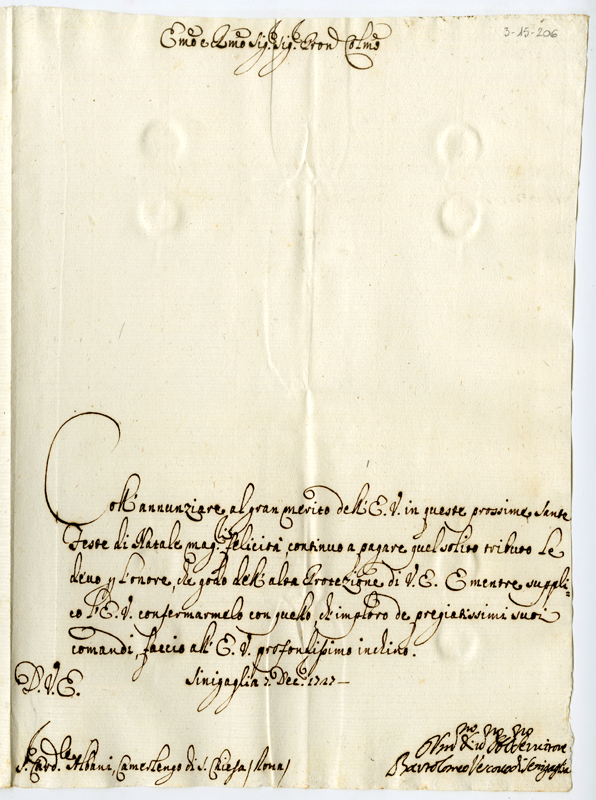 3-15-206
Emo e Rmo Sig. Sig. Pron Colmo
Coll'annunziare al gran merito dell'E. V. in queste prossime Sante
Feste di Natale mag.ri felicità, continuo a pagare quel solito tributo Le
devo p l'onore, che godo dell'alta Protezione di V. E. E mentre suppli=
co l'E. V. confermarmelo con quello, ch'imploro de pregiatissimi suoi
comandi, faccio all'E. V. profondissimo inchino.
D. V. E.
Sinigaglia 7. Dec. 1727
S. Card.le Albani, Camerlengo di S. Chiesa / Roma /
Umo Divmo Obbmo Servitore
Bartolomeo Vescovo di Senigaglia